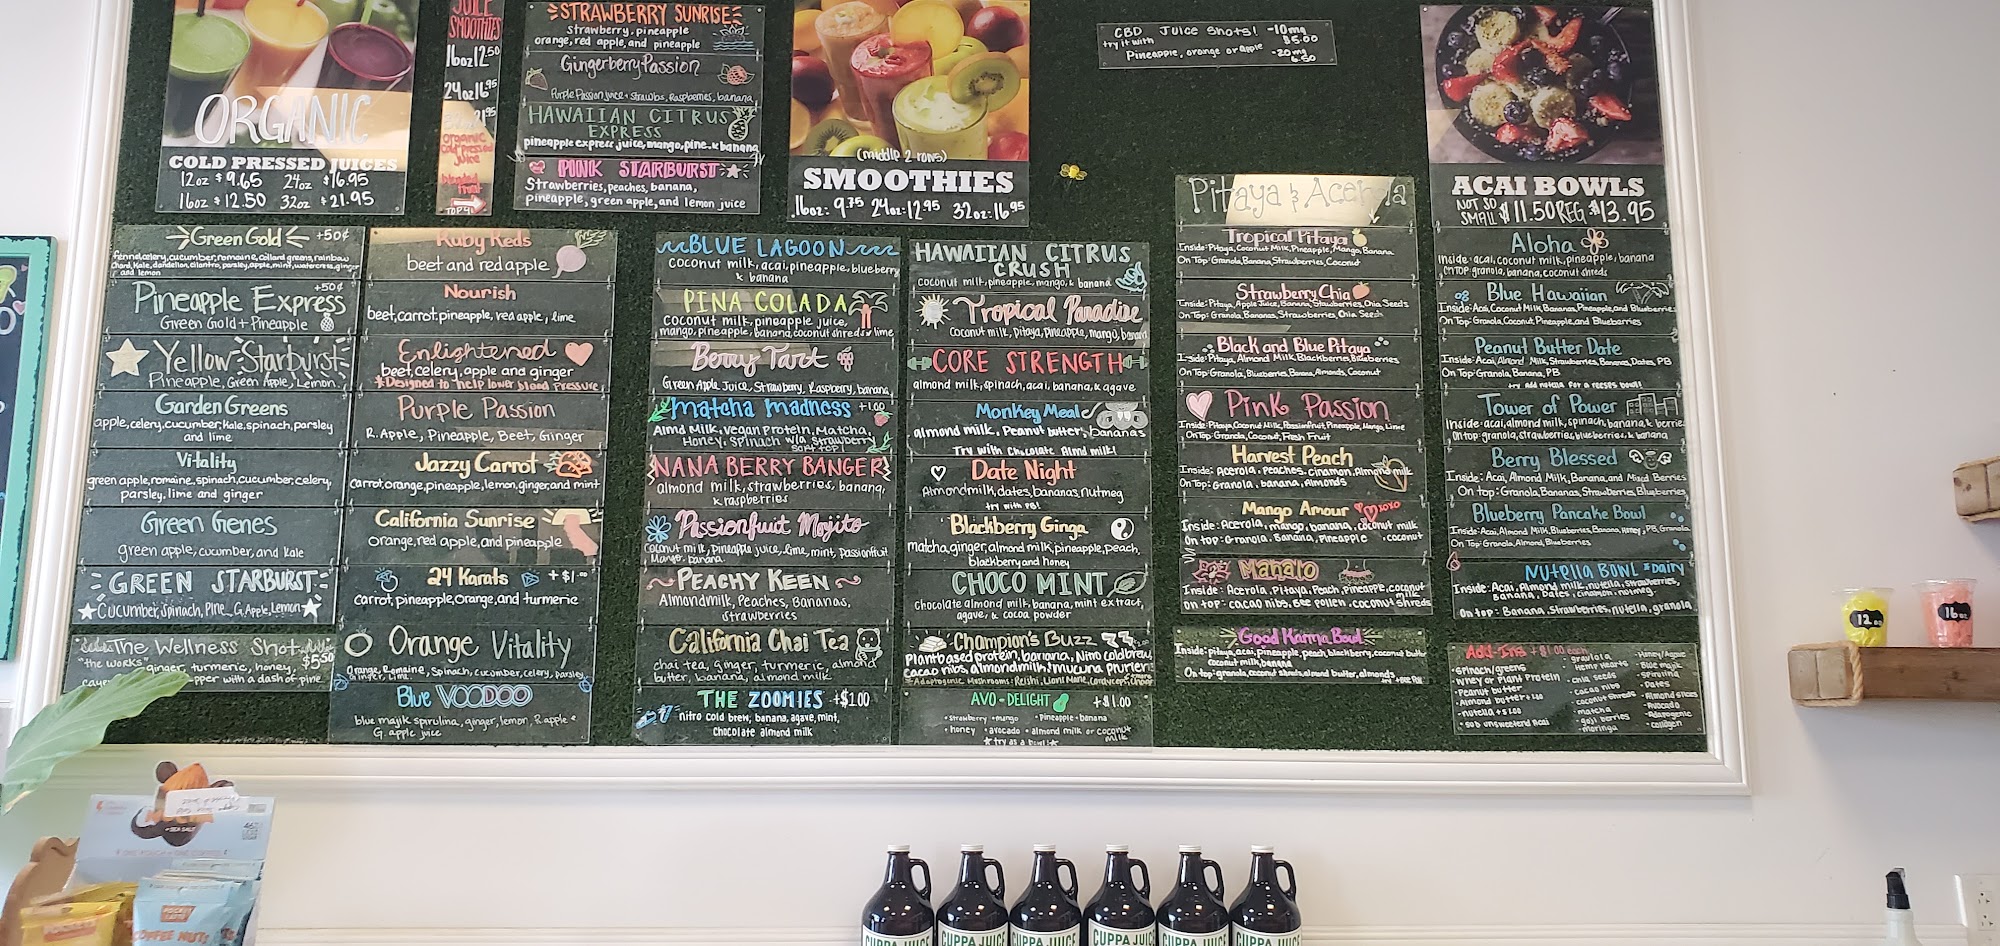 ORGANIC
COLD PRESSED JUICES
12oz $9.65 24oz $16.95
16oz $12.50 32oz $21.95
JUICE
SMOOTHIES
16oz 12.50
24oz 16.95
21.95
organic
cold Pressed
juice
blended
fruit
STRAWBERRY SUNRISE
Strawberry, pineapple
orange, red apple, and pineapple
Gingerberry Passion
Purple Passion juice + strawbs, Raspberries, banana
HAWAIIAN CITRUS
EXPRESS
pineapple express juice, mango, pine. & banana
PINK STARBURST
Strawberries, peaches, banana,
pineapple, green apple, and lemon juice
(middle 2 rows)
SMOOTHIES
16oz: 9.75 24oz: 12.95 32oz: 16.95
CBD Juice Shots! -10mg
try it with $5.00
Pineapple, orange or apple -20mg
6.50
ACAI BOWLS
NOT SO SMALL $11.50 REG. $13.95
Green Gold +50¢
fennel, celery, cucumber, romaine, collard greens, rainbow
chard, kale, dandelion, cilantro, parsley, apple, mint, watercress, ginger
and lemon
Pineapple Express +50¢
Green Gold + Pineapple
Yellow Starburst
Pineapple, Green Apple, Lemon
Garden Greens
apple, celery, cucumber, kale, spinach, parsley
and lime
Vitality
green apple, romaine, spinach, cucumber, celery,
parsley, lime and ginger
Green Genes
green apple, cucumber, and kale
GREEN STARBURST
Cucumber, Spinach, Pine, G. Apple, Lemon
The Wellness Shot
"the works" ginger, turmeric, honey, $5.50
pepper with a dash of pine
Ruby Reds
beet and red apple
Nourish
beet, carrot, pineapple, red apple, lime
Enlightened
beet, celery, apple and ginger
*Designed to help lower blood pressure
Purple Passion
R. Apple, Pineapple, Beet, Ginger
Jazzy Carrot
carrot, orange, pineapple, lemon, ginger, and mint
California Sunrise
orange, red apple, and pineapple
24 Karats + $1.00
carrot, pineapple, orange, and turmeric
Orange Vitality
Orange, Romaine, Spinach, cucumber, celery, parsley,
Ginger, Lime
Blue VOODOO
blue majik spirulina, ginger, lemon, R. apple +
G. apple juice
BLUE LAGOON
coconut milk, acai, pineapple, blueberry
& banana
PINA COLADA
coconut milk, pineapple juice,
mango, pineapple, banana, coconut shreds & lime
Berry Tart
Green Apple Juice, Strawberry, Raspberry, banana
Matcha Madness +1.00
Almd Milk, vegan protein, Matcha,
Honey, spinach w/a strawberry
NANA BERRY BANGER
almond milk, strawberries, banana,
& raspberries
Passionfruit Mojito
Coconut milk, pineapple juice, lime, mint, passionfruit
Mango, banana
PEACHY KEEN
Almondmilk, Peaches, Bananas,
strawberries
California Chai Tea
chai tea, ginger, turmeric, almond
butter, banana, almond milk
THE ZOOMIES +$1.00
nitro cold brew, banana, agave, mint,
chocolate almond milk
HAWAIIAN CITRUS
CRUSH
coconut milk, pineapple, mango, & banana
Tropical Paradise
coconut milk, pitaya, pineapple, mango, banana
CORE STRENGTH
almond milk, spinach, acai, banana, & agave
Monkey Meal
almond milk, Peanut butter, bananas
Try with chocolate Almd milk!
Date Night
Almondmilk, dates, bananas, nutmeg
try with PB!
Blackberry Ginga
matcha, ginger, almond milk, pineapple, peach,
blackberry and honey
CHOCO MINT
chocolate almond milk, banana, mint extract,
agave, & cocoa powder
Champion's Buzz
Plant based protein, banana, Nitro coldbrew,
cacao nibs, almondmilk + mucuna pruriens
Adaptogenic Mushrooms: Reishi, Lions Mane, Cordyceps
AVO-DELIGHT +$1.00
• strawberry • mango • pineapple • banana
• honey • avocado • almond milk or coconut
milk
★ try as a bowl! ★
Pitaya & Acerola
Tropical Pitaya
Inside: Pitaya, Coconut Milk, Pineapple, Mango, Banana
On Top: Granola, Bananas, Strawberries, Coconut
Strawberry Chia
Inside: Pitaya, Apple Juice, Banana, Strawberries, Chia Seeds
On Top: Granola, Bananas, Strawberries, Chia Seeds
Black and Blue Pitaya
Inside: Pitaya, Almond Milk, Blackberries, Blueberries
On Top: Granola, Blueberries, Banana, Almonds, Coconut
Pink Passion
Inside: Pitaya, Coconut Milk, Passionfruit, Pineapple, Mango, Lime
On Top: Granola, Coconut, Fresh Fruit
Harvest Peach
Inside: Acerola, Peaches, cinamon, Almond milk
On Top: Granola, banana, Almonds
Mango Amour xoxo
Inside: Acerola, mango, banana, coconut milk
On top: Granola, Banana, Pineapple, coconut
Mahalo
Inside: Acerola, Pitaya, Peach, Pineapple, coconut milk
on top: cacao nibs, Bee pollen, coconut shreds
Good Karma Bowl
Inside: pitaya, acai, pineapple, peach, blackberry, coconut butter
coconut milk, banana
On top: granola, coconut shreds, almond butter, almonds
Aloha
inside: acai, coconut milk, pineapple, banana
on top: granola, banana, coconut shreds
Blue Hawaiian
Inside: Acai, Coconut Milk, Bananas, Pineapple, and Blueberries
On Top: Granola, Coconut, Pineapple, and Blueberries
Peanut Butter Date
Inside: Acai, Almond Milk, Strawberries, Bananas, Dates, PB
On Top: Granola, Banana, PB
try add nutella for a reeses bowl!
Tower of Power
Inside: acai, almond milk, spinach, banana, & berries
on top: granola, strawberries, blueberries, & banana
Berry Blessed
Inside: Acai, Almond Milk, Banana, and Mixed Berries
On top: Granola, Bananas, Strawberries, Blueberries
Blueberry Pancake Bowl
Inside: Acai, Almond Milk, Blueberries, Banana, Honey, PB, Granola
On Top: Granola, Almond, Blueberries
NUTELLA BOWL *Dairy
Inside: Acai, Almond milk, nutella, strawberries,
Banana, Dates, cinamon, nutmeg
On top: Banana, Strawberries, nutella, granola
Add-Ins +$1.00 each
• spinach/greens
• Whey or Plant Protein
• Peanut butter
• Almond butter
• nutella +$1.00
• sub unsweetend acai
• graviola
• Hemp Hearts
• chia seeds
• cacao nibs
• coconut shreds
• matcha
• goji berries
• moringa
• Honey/Agave
• Blue majik
spirulina
• Dates
• Almond slices
• Avocado
• Adaptogenic
• collagen
12 oz
16 oz
+ SEA SALT
COFFEE NUTS
CUPPA JUICE
CUPPA JUICE
CUPPA JUICE
CUPPA JUICE
CUPPA JUICE
CUPPA JUICE